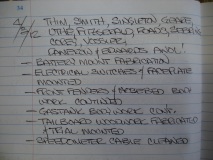 THIN, SMITH, SINGLETON, GEARE,
LYTHE, FITZGERALD, ROADS, SOBERS,
COREY, VOSSLER,
CRANSTON & EDWARDS AND L!
- BATTERY MOUNT FABRICATION
- ELECTRICAL SWITCHES & FACEPLATE
MOUNTED
- FRONT FENDERS & BODY
WORK CONTINUED
- GASTANK BODY WORK CONT.
- TAILBOARD WOODWORK FABRICATED
& TRIAL MOUNTED
- SPEEDOMETER CABLE CLEANED